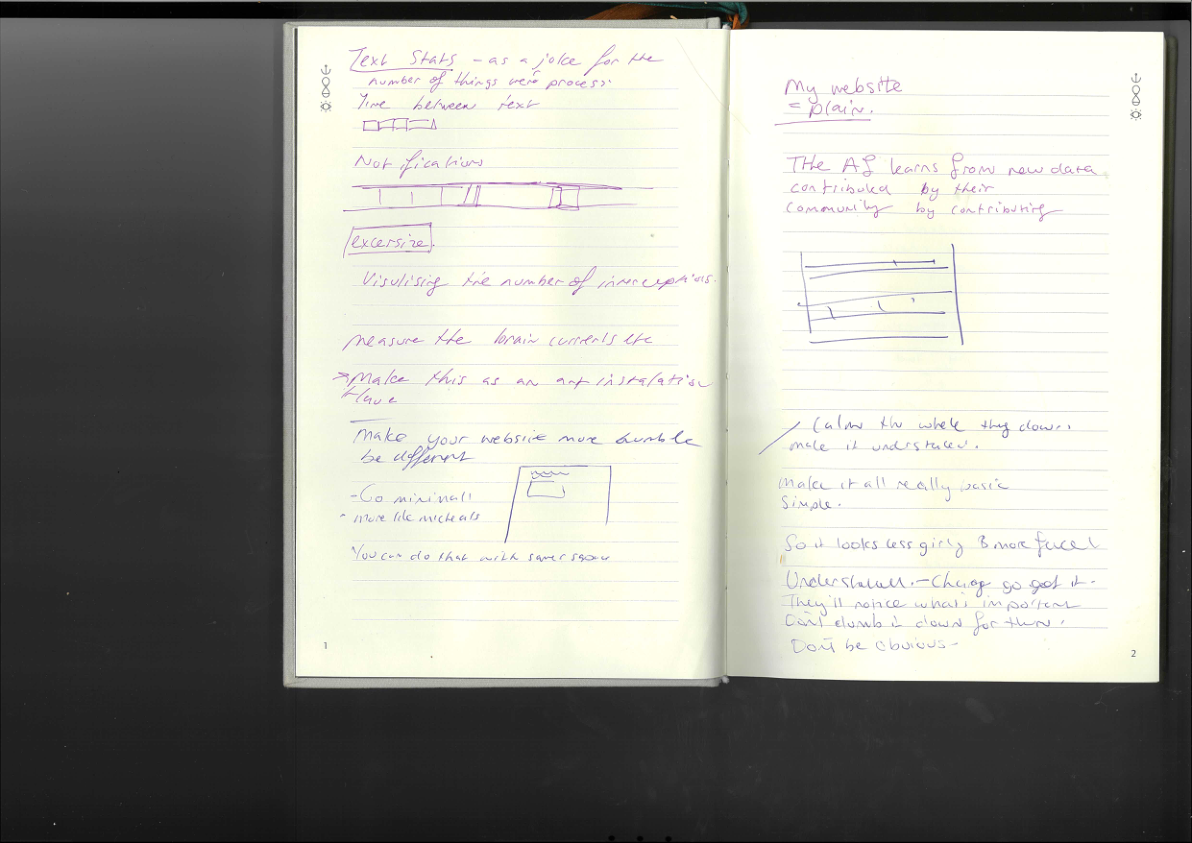 Text Stats - as a joke for the
number of things we're process.
Time between text
Notifications
excersize.
Visulising the number of interceptions.
measure the brain currents etc
→ Make this as an art instalation
Make your website more humble
be different
- Go minimal!
- more like micheals
You can do that with
1
My website
= plain.
THe AI learns from new data
contributed by their
community by contributing
Calm the whole thing down.
make it
Make it all really basic
Simple.
So it looks less girly & more
go get it.
They'll notice what's important
Don't dumb it down for them.
Don't be obvious -
2